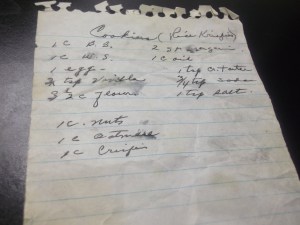 Cookies (Rice Krispies)
1 C B.S. 2
1 C W.S. 1 C oil
1 egg 1 tsp
tsp Vanilla tsp soda
3 1/2 C flour 1 tsp salt
1 C. nuts
1 C Oatmeal
1 C Crispies